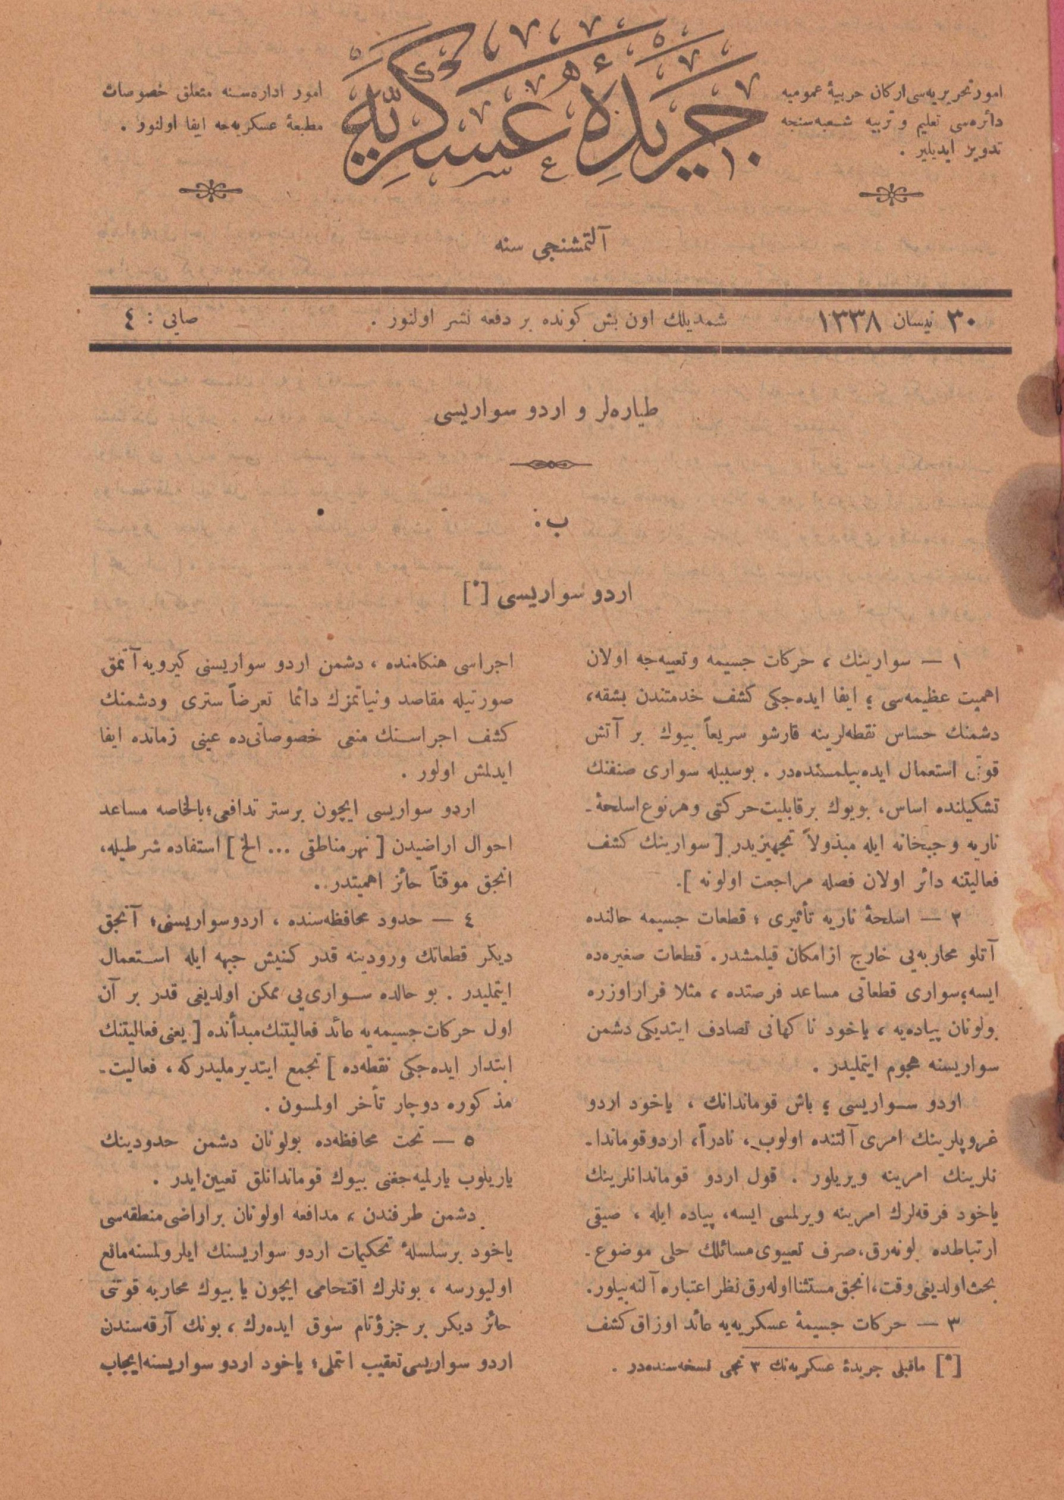 جريدهٔ عسكريه
امور تحريريه‌سی اركان حربيهٔ عموميه
دائره‌سی تعليم و تربيه شعبه‌سنجه
تدوير ايديلير .
امور اداره‌سنه متعلق خصوصات
مطبعهٔ عسكريه‌جه ايفا اولنور .
آلتمشنجی سنه
٣٠ نيسان ١٣٣٨
شمديلك اون بش كونده بر دفعه نشر اولنور .
صايی : ٤
طياره‌لر و اردو سواريسی
ب .
اردو سواريسی [*]
١ — سوارينك ، حركات جسيمه وتعبيه‌جه اولان
اهميت عظيمه‌سی ؛ ايفا ايده‌جكی كشف خدمتندن بشقه،
دشمنك حساس نقطه‌لرينه قارشو سريعاً بيوك بر آتش
قوتی استعمال ايده‌بيلمسنده‌در . بوسببله سواری صنفنك
تشكيلنده اساس، بويوك برقابليت‌حركتی وهر نوع اسلحهٔ ـ
ناريه و جبخانه ايله مبذولاً تجهيزيدر [ سوارينك كشف
فعاليتنه دائر اولان فصله مراجعت اولونه ].
٢ — اسلحهٔ ناريه تأثيری ؛ قطعات جسيمه حالنده
آتلو محاربه‌يی خارج ازامكان قيلمشدر. قطعات صغيره‌ده
ايسه؛سواری قطعاتی مساعد فرصتده ، مثلا فراراوزره
بولونان پياده‌يه ، ياخود ناكهانی تصادف ايتديكی دشمن
سواريسنه هجوم ايتمليدر .
اردو سواريسی ؛ باش قوماندانك ، ياخود اردو
غروپلرينك امری آلتنده اولوب، نادراً، اردوقوماندا ـ
نلرينك امرينه ويريلور . قول اردو قوماندانلرينك
ياخود فرقه‌لرك امرينه ويرلمسی ايسه، پياده ايله ، صيقی
ارتباطده بولنه‌رق، صرف تعبيوی مسائلك حلی موضوع ـ
بحث‌اولديغی وقت، انجق مستثنا اوله‌رق نظر اعتباره آلنه‌بيلور.
٣ — حركات جسيمهٔ عسكريه‌يه عائد اوزاق كشف
[*] ماقبلی جريدهٔ عسكريه‌نك ٣ نجی نسخه‌سنده‌در .
اجراسی هنكامنده ، دشمن اردو سواريسنی كيرويه آتمق
صورتيله مقاصد ونياتمزك دائما تعرضاً ستری ودشمنك
كشف اجراسنك منعی خصوصاتی‌ده عينی زمانده ايفا
ايدلمش اولور .
اردو سواريسی ايچون برستر تدافعی؛بالخاصه مساعد
احوال اراضيدن [ نهرمناطقی ... الخ ] استفاده شرطيله،
انجق موقتاً حائز اهميتدر .
٤ — حدود محافظه‌سنده ، اردوسواريسنی؛ آنجق
ديكر قطعاتك ورودينه قدر كنيش جبهه ايله استعمال
ايتمليدر . بو حالده سواری‌يی ممكن اولديغی قدر بر آن
اول حركات‌جسيمه‌يه عائد فعاليتنك‌مبدأنده [ يعنی‌فعاليتنك
ابتدار ايده‌جكی نقطه‌ده ] تجمع ايتديرمليدركه ، فعاليت ـ
مذكوره دوچار تأخر اولمسون .
٥ — تحت محافظه‌ده بولونان دشمن حدودينك
ياريلوب يارلميه‌جغنی بيوك قوماندانلق تعيين‌ايدر .
دشمن طرفندن ، مدافعه اولونان براراضی‌منطقه‌سی
ياخود برسلسلهٔ تحكيمات اردو سواريسنك ايلرولمسنه‌مانع
اوليورسه ، بونلرك اقتحامی ايچون يا بيوك محاربه قوتنی
حائز ديكر بر جزؤتام سوق ايده‌رك ، بونك آرقه‌سندن
اردو سواريسی تعقيب ايتملی ؛ ياخود اردو سواريسنه‌ايجاب